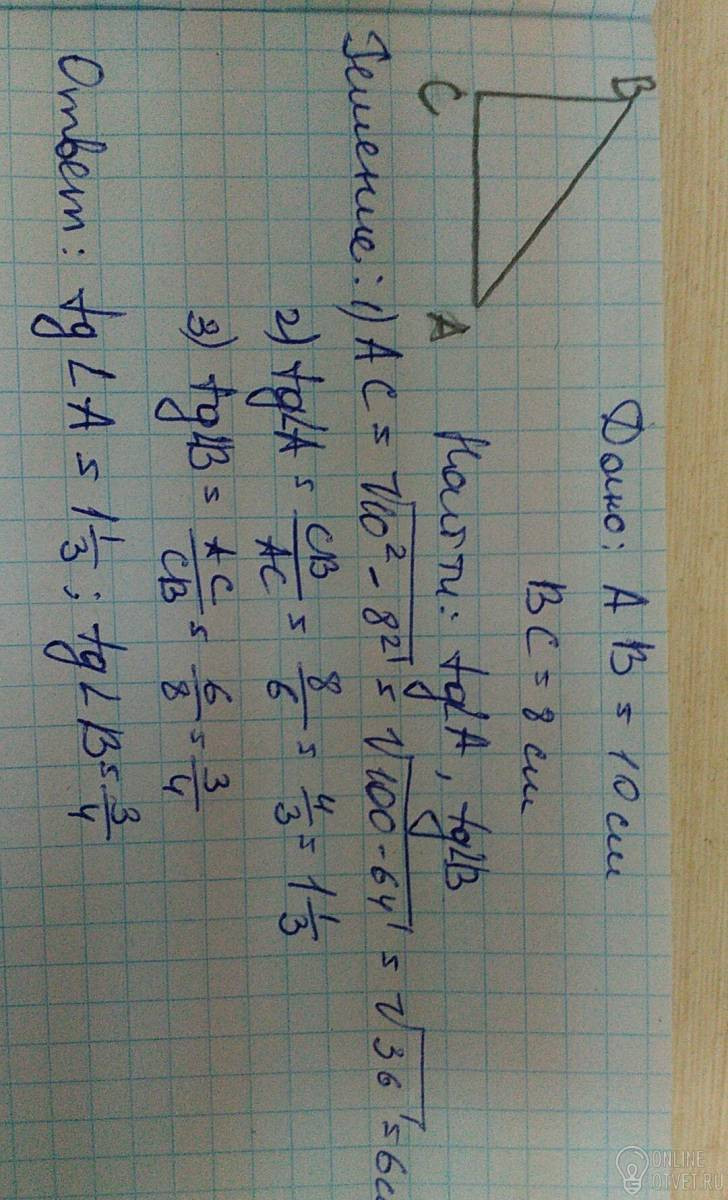 B
C
A
Дано: AB = 10 см
BC = 8 см
Найти: tg∠A, tg∠B
Решение: 1) AC = √10² - 8² = √100 - 64 = √36 = 6 с
2) tg∠A = CB/AC = 8/6 = 4/3 = 1 1/3
3) tg∠B = AC/CB = 6/8 = 3/4
Ответ: tg∠A = 1 1/3; tg∠B = 3/4
ONLINE
OTVET.RU